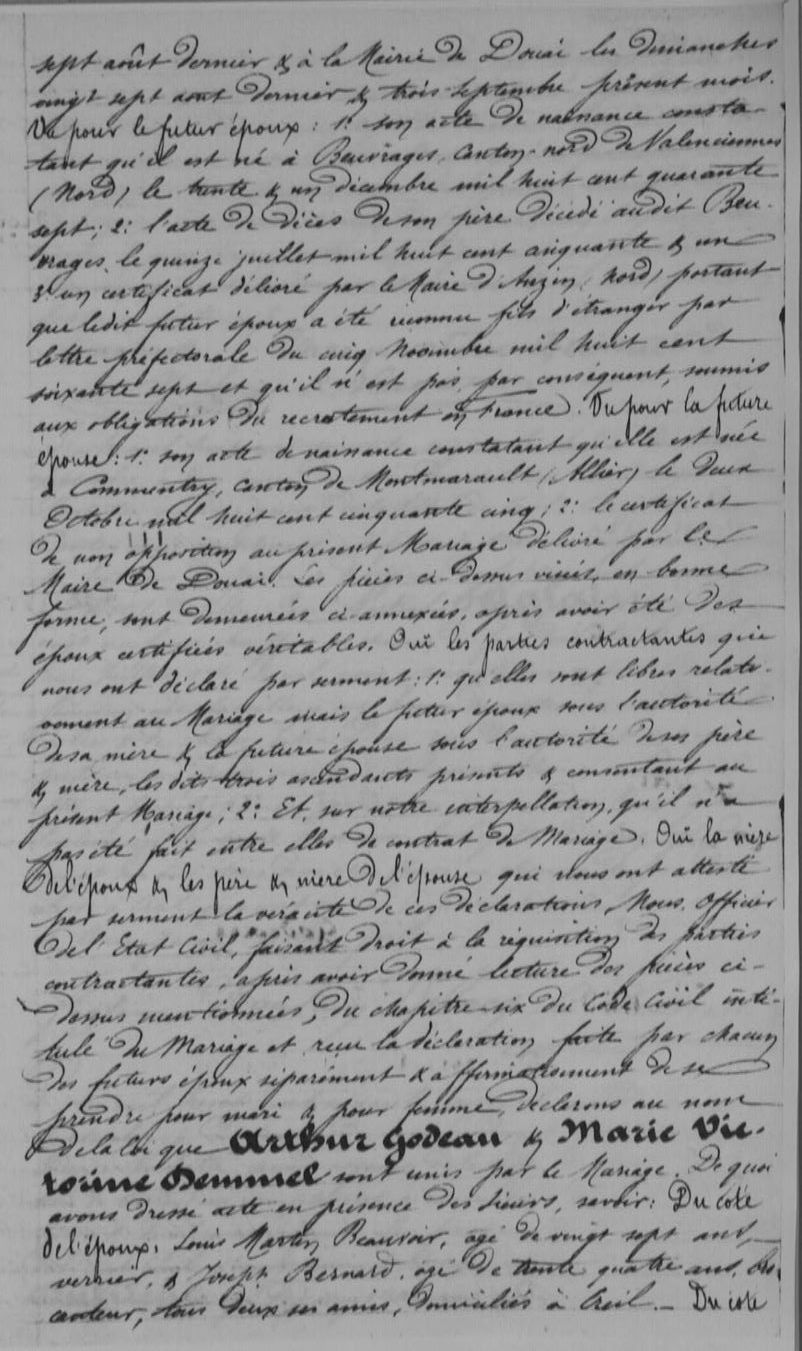 sept août dernier & à la Mairie de Douai les dimanches
vingt sept aout dernier & trois septembre présent mois.
Vu pour le futur époux : 1° son acte de naissance consta-
tant qu'il est né à Beuvrages, canton-nord de Valenciennes
(Nord) le trente & un décembre mil huit cent quarante
sept ; 2° l'acte de décès de son père décédé audit Beu-
vrages, le quinze juillet mil huit cent cinquante & un
& un certificat délivré par le Maire d'Anzin (Nord) portant
que ledit futur époux a été reconnu fils d'étranger par
lettre préfectorale du cinq Novembre mil huit cent
soixante sept et qu'il n'est pas, par conséquent, soumis
aux obligations du recrutement en France. Vu pour la future
épouse : 1° son acte de naissance constatant qu'elle est née
à Commentry, canton de Montmarault (Allier) le deux
Octobre mil huit cent cinquante cinq ; 2° le certificat
de non opposition au présent Mariage délivré par le
Maire de Douai. Les pièces ci-dessus visées, en bonne
forme, sont demeurées ci-annexées, après avoir été des
époux certifiées véritables. Ouï les parties contractantes qui
nous ont déclaré par serment : 1° qu'elles sont libres relati-
vement au Mariage mais le futur époux sous l'autorité
de sa mère & la future épouse sous l'autorité de ses père
& mère, les dits trois ascendants présents & consentant au
présent Mariage ; 2° Et, sur notre interpellation, qu'il n'a
pas été fait entre elles de contrat de Mariage. Ouï la mère
de l'époux & les père & mère de l'épouse qui nous ont attesté
par serment la véracité de ces déclarations, Nous, Officier
de l'Etat Civil, faisant droit à la réquisition des parties
contractantes, après avoir donné lecture des pièces ci-
dessus mentionnées, du chapitre six du Code Civil inti-
tulé du Mariage et reçu la déclaration faite par chacun
des futurs époux séparément & affirmativement de se
prendre pour mari & pour femme, déclarons au nom
de la loi que Arthur Godeau & Marie Vic-
torine Demmel sont unis par le Mariage. De quoi
avons dressé acte en présence des sieurs, savoir : Du coté
de l'époux, Louis Martin Beauvoir, agé de vingt sept ans,
verrier, & Joseph Bernard, agé de trente quatre ans, bro-
canteur, tous deux ses amis, domiciliés à Creil. — Du coté